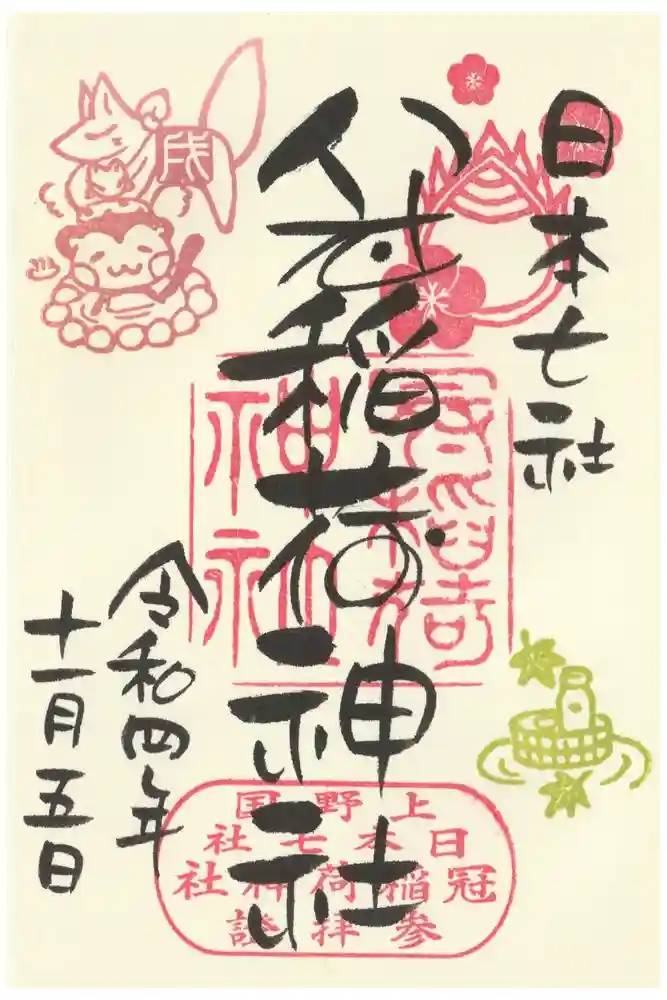 日本七社
冠稲荷神社
令和四年
十一月五日
戌
上野国
日本七社
冠稲荷神社
參拝證